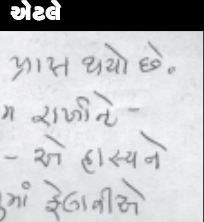 એટલે
પ્રાપ્ત થયો છે.
રાખીને -
- એ હાસ્યને
માં ફેલાવીએ